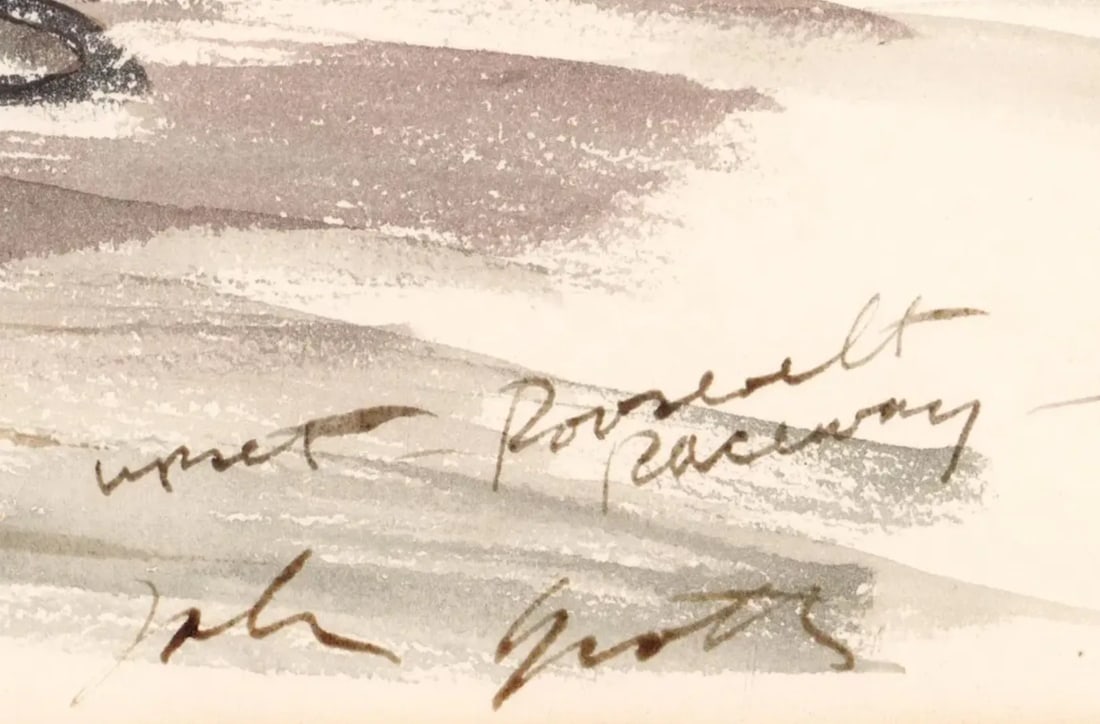 upset - Roosevelt
Raceway -
John Groth